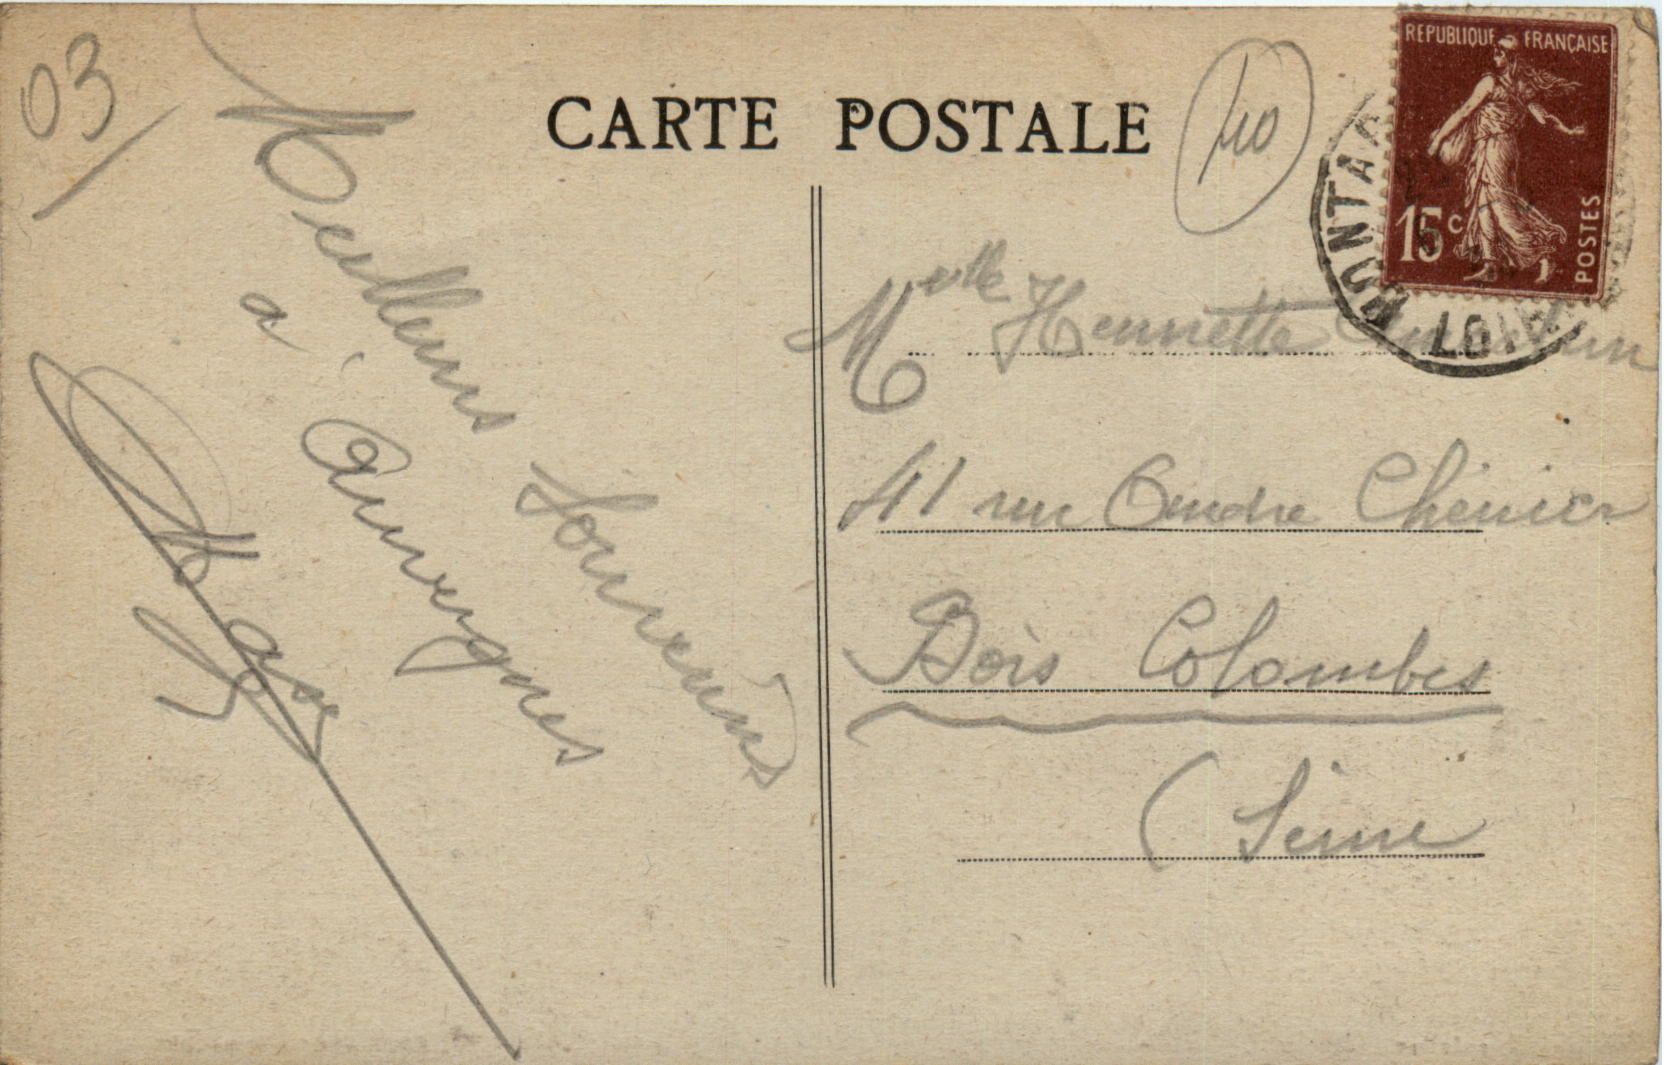 03
CARTE POSTALE
40
REPUBLIQUE FRANÇAISE
15c
POSTES
MONTA
LOI
Meilleurs Souvenirs
a
Auvergnes
Melle Henriette
41 rue Andre Chénier
Bois Colombes
(Seine